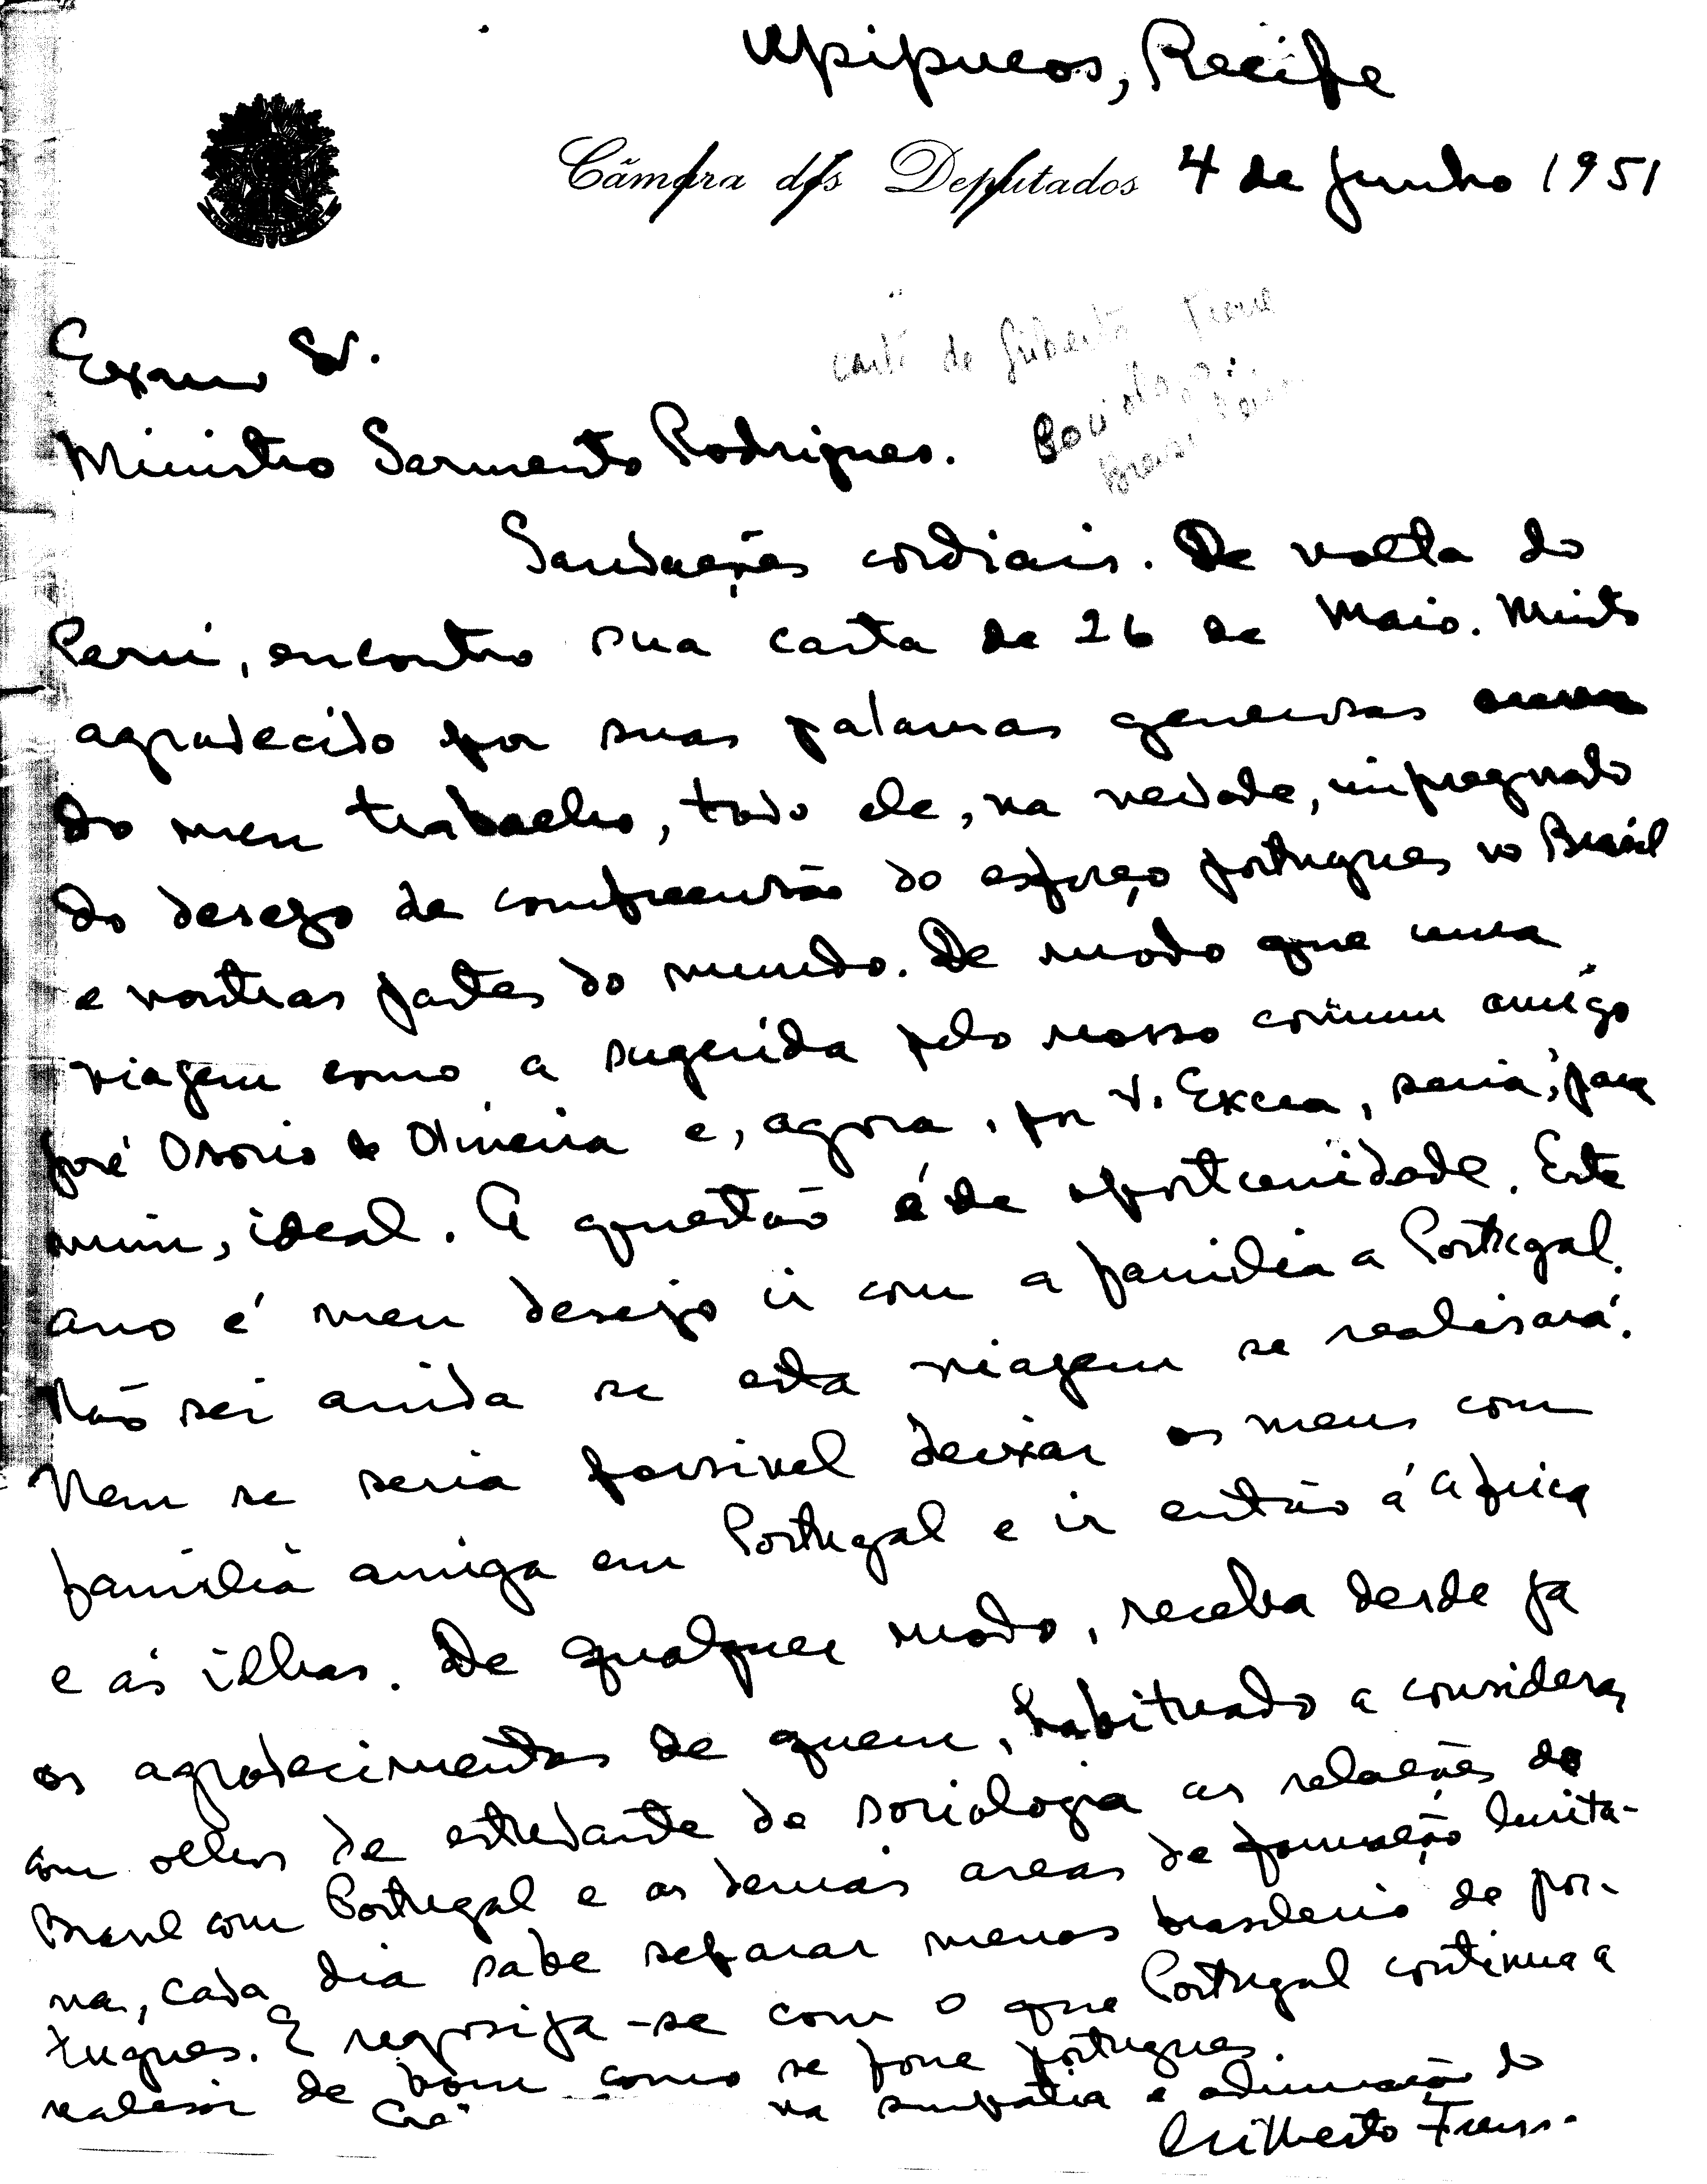 Apipucos, Recife
Câmara dos Deputados 4 de Junho 1951
carta de Gilberto Freire
Exmo Sr.
Ministro Sarmento Rodrigues.
Saudações cordiais. De volta do
Perú, encontro sua carta de 26 de Maio. Muito
agradecido por suas palavras generosas
do meu trabalho, todo ele, na verdade, impregnado
do desejo de compreensão do esforço portugues no Brasil
e noutras partes do mundo. De modo que uma
viagem como a sugerida pelo nosso comum amigo
José Osorio de Oliveira e, agora, por V. Excia, seria, para
mim, ideal. A questão é de oportunidade. Este
ano é meu desejo ir com a familia a Portugal.
Não sei ainda se esta viagem se realisará.
Nem se seria possivel deixar os meus com
familia amiga em Portugal e ir então á Africa
e ás ilhas. De qualquer modo, receba desde já
os agradecimentos de quem, habituado a considerar
com olhos de estudante de sociologia as relações do
Brasil com Portugal e as demais areas de formação lusita-
na, cada dia sabe separar menos brasileiro de por-
tugues. E regosija-se com o que Portugal continua a
realisar de bom como se fosse portugues.
Crê na simpatia e admiração do
Gilberto Freyre